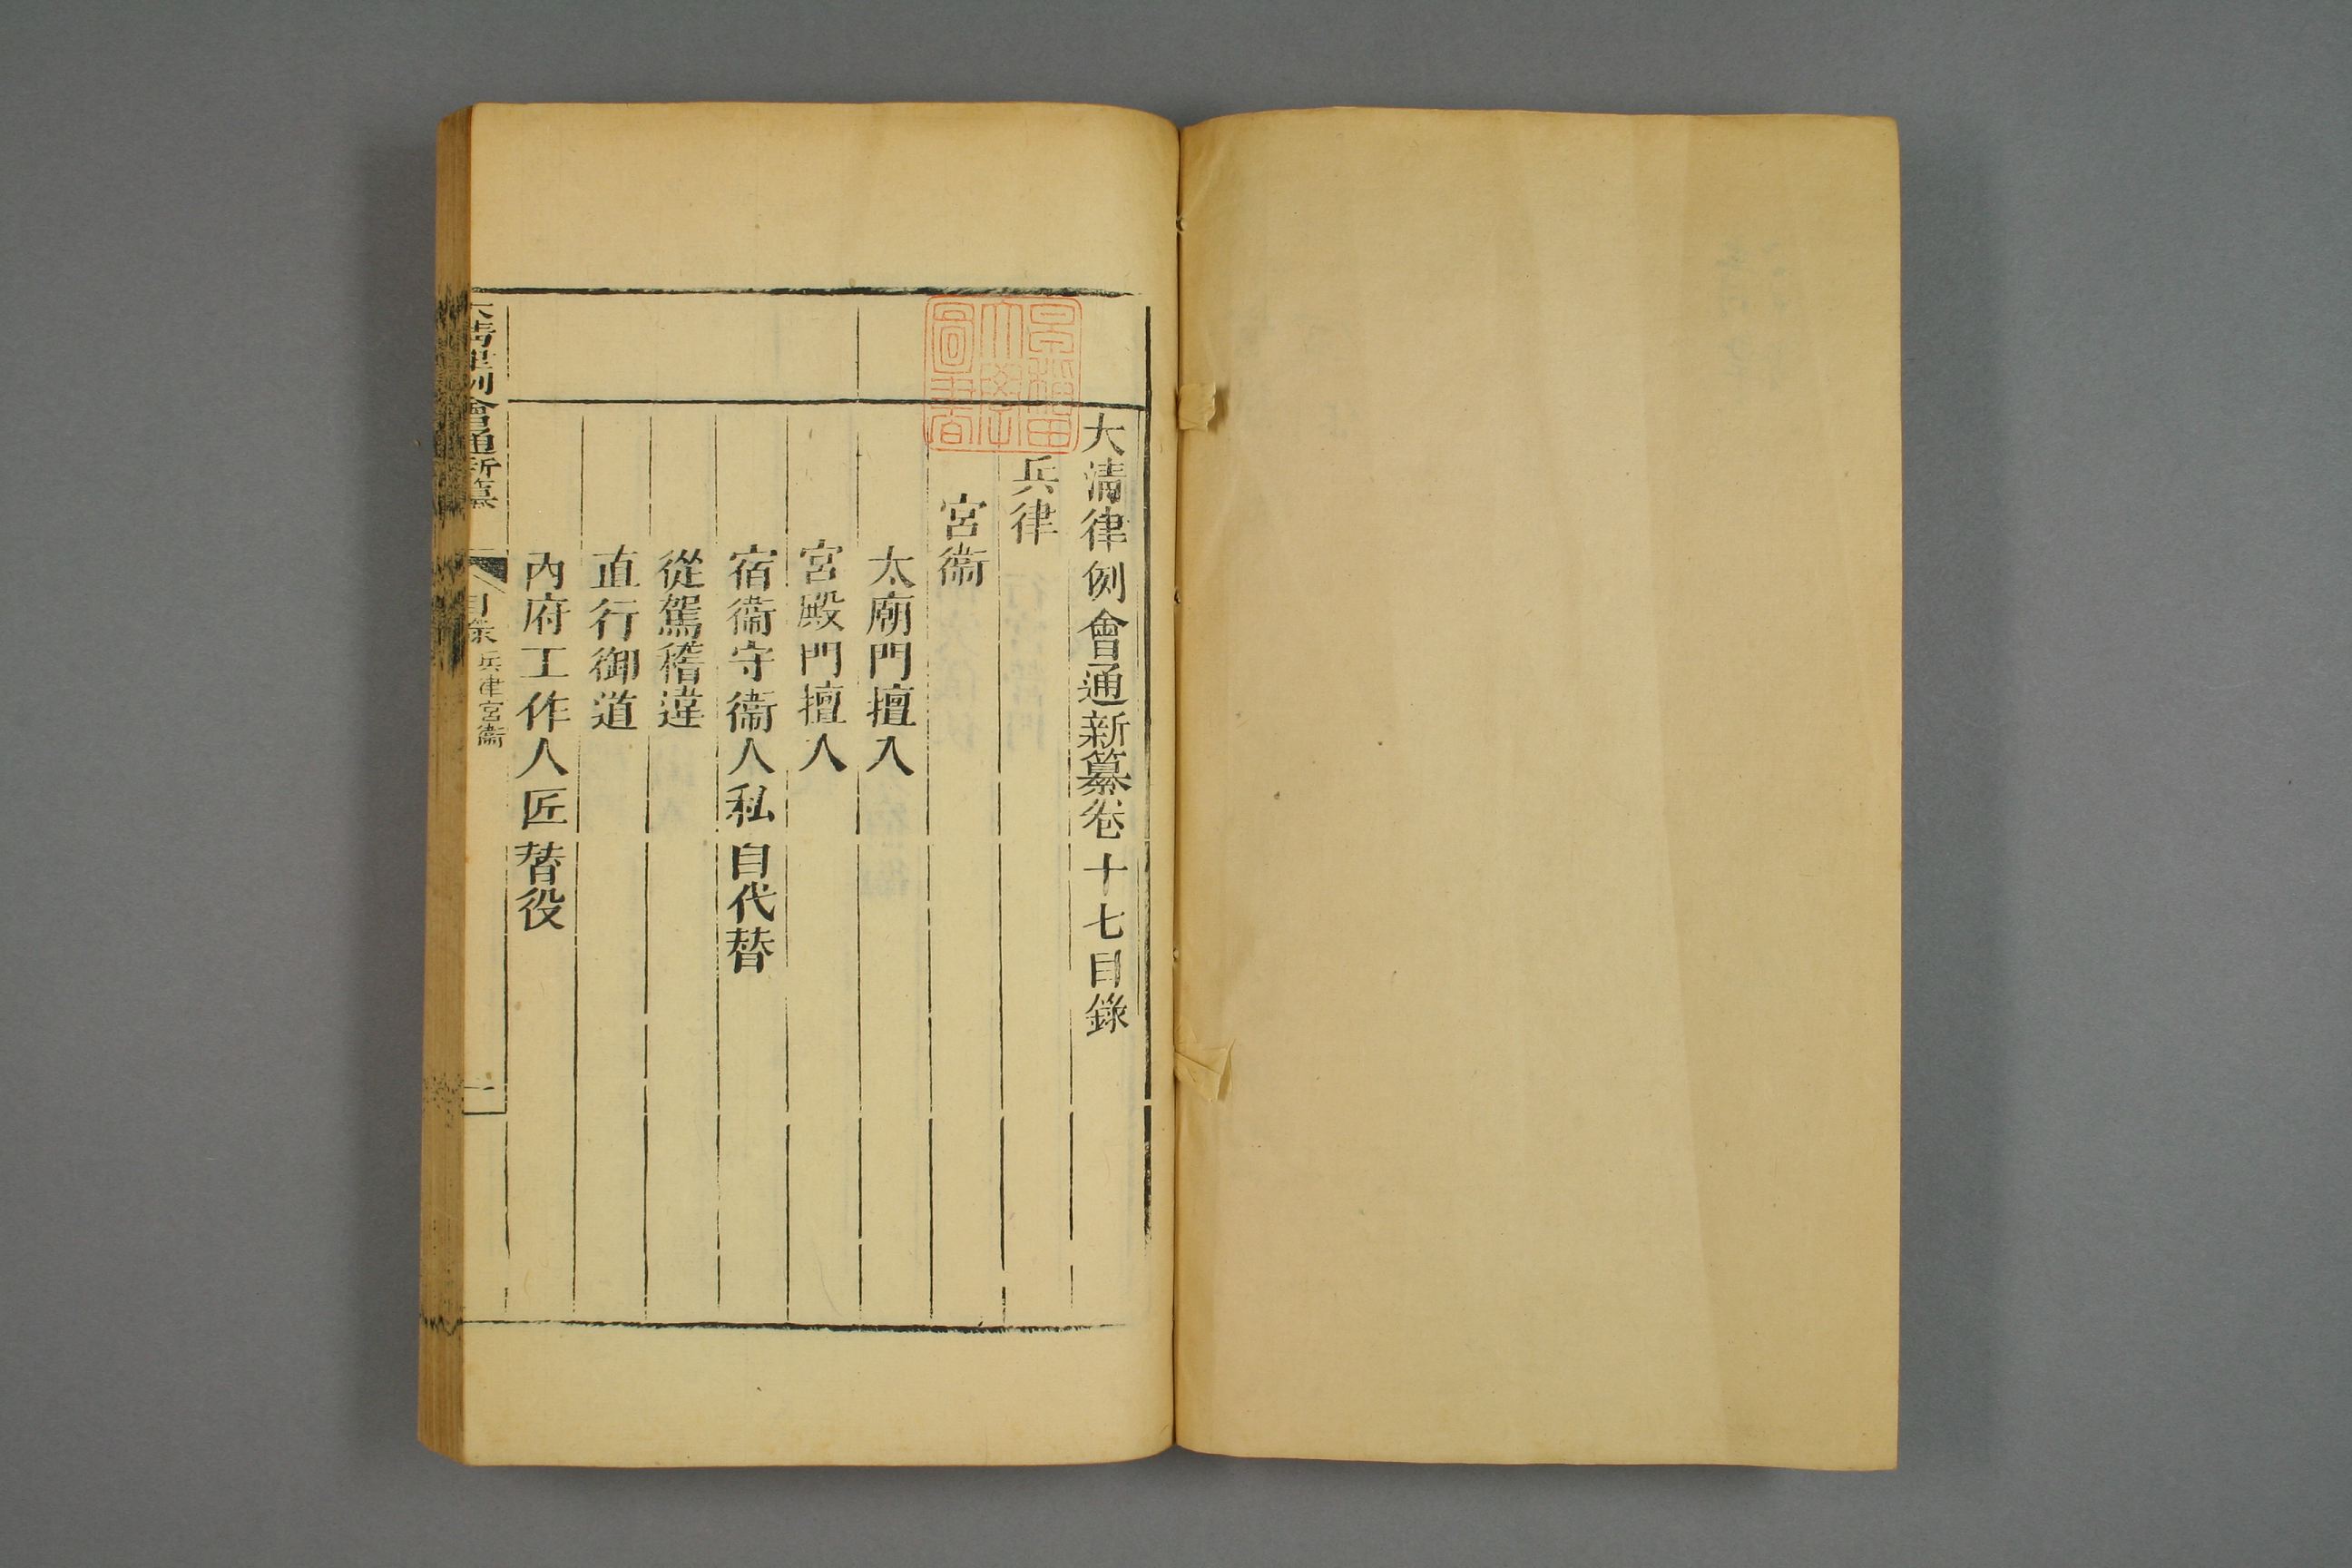 大清律例會通新纂卷十七目錄
兵律
宮衞
太廟門擅入
宮殿門擅入
宿衞守衞人私自代替
從駕稽違
直行御道
內府工作人匠替役
大清律例會通新纂
目錄 兵律宮衞
一
早稻田大學圖書